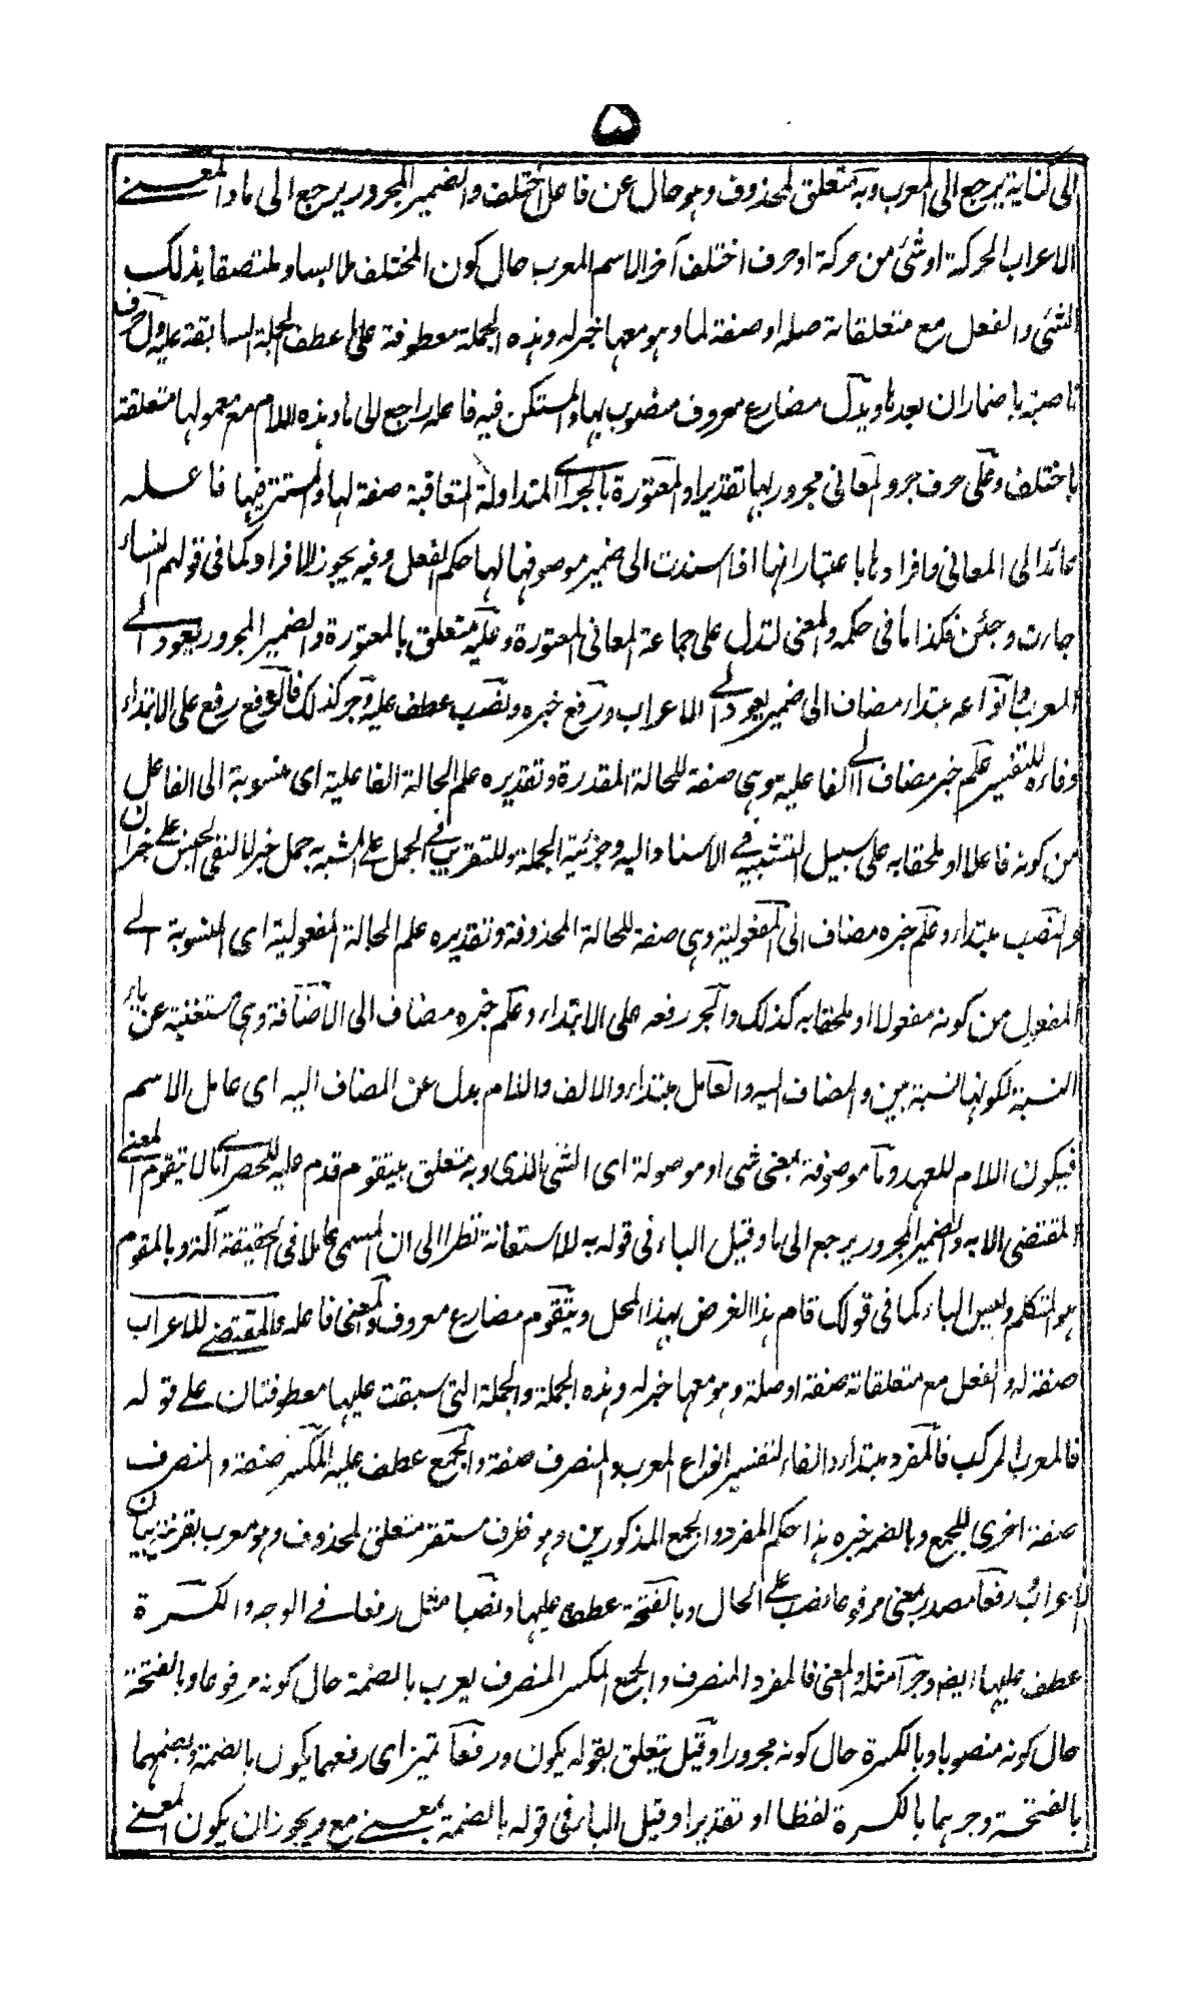 ۵
الى كناية يرجع الى المعرب وبه متعلق لمحذوف وهو حال عن فاعل اختلف والضمير المجرور يرجع الى ما والمعنى
الاعراب الحركة او شئ من حركة او حرف اختلف آخر الاسم المعرب حال كون المختلف ملابسا وملتصقا بذلك
الشئ والفعل مع متعلقاته صلة او صفة لما وهو معها خبر له وهذه الجملة معطوفة على عطف الجملة السابقة عليه ول حرف
ناصبة باضمار ان بعدها ويدل مضارع معروف منصوب بها والمستكن فيه فاعله راجع الى ما وهذه اللام مع معمولها متعلقة
باختلف وعلى حرف جر والمعانى مجرور بها تقديرا والمعتورة بالجر اى المتداولة المتعاقبة صفة لها والمستتر فيها فاعله
عائد الى المعانى وافرادها باعتبار انها اذا اسندت الى ضمير موصوفها لها حكم الفعل وفيه يجوز الافراد كما فى قولهم النساء
جاءت وجئن فكذا ما فى حكمه والمعنى لتدل على جماعة المعانى المعتورة وعليه متعلق بالمعتورة والضمير المجرور يعود الى
المعرب وانواعه مبتداء مضاف الى ضمير يعود الى الاعراب ورفع خبره ونصب عطف عليه وجر كذلك فالرفع رفع على الابتداء
وفاءه للتفسير علم خبر مضاف الى الفاعلية وهى صفة للحالة المقدرة وتقديره علم الحالة الفاعلية اى منسوبة الى الفاعل
من كونه فاعلا او ملحقا به على سبيل التشبيه فى الاسناد اليه وجزئية الجملة وللتقريب فى الحمل على المشبه حمل خبر لا لنفى الجنس على خبر ان
والنصب مبتداء وعلم خبره مضاف الى المفعولية وهى صفة للحالة المحذوفة وتقديره علم الحالة المفعولية اى المنسوبة الى
المفعول من كونه مفعولا او ملحقا به كذلك والجر رفعه على الابتداء وعلم خبره مضاف الى الاضافة وهى مستغنية عن ياء
النسبة لكونها نسبة بين والمضاف اليه والعامل مبتداء والالف واللام بدل عن المضاف اليه اى عامل الاسم
فيكون اللام للعهد وما موصوفة بمعنى شى او موصولة اى الشئ الذى وبه متعلق بيتقوم قدم عليه للحصر اى ما لا يتقوم المعنى
المقتضى الا به والضمير المجرور يرجع الى ما وقيل الباء فى قوله به للاستعانة نظرا الى ان المسمى عاملا فى الحقيقة آلة وبالمقوم
هو المتكلم وليس الباء كما فى قولك قام هذا الغرض بهذا المحل ويتقوم مضارع معروف والمعنى فاعله والمقتضى للاعراب
صفة له والفعل مع متعلقاته صفة او صلة وهو معها خبر له وهذه الجملة والجملة التى سبقت عليها معطوفتان على قوله
فالمعرب المركب فالمفرد مبتداء والفاء لتفسير انواع المعرب والمنصرف صفة والجمع عطف عليه المكسر صفة والمنصرف
صفة اخرى للجمع وبالضمة خبره هذا حكم المفرد والجمع المذكورين وهو ظرف مستقر متعلق لمحذوف وهو معرب بقرينة بيان
الاعراب رفعا مصدر بمعنى مرفوعا نصب على الحال وبالفتحة عطف عليها ونصبا مثل رفعا فى الوجه والكسرة
عطف عليها ايضا وجرا مثله والمعنى فالمفرد المنصرف والجمع المكسر المنصرف يعرب بالضمة حال كونه مرفوعا وبالفتحة
حال كونه منصوبا وبالكسرة حال كونه مجرورا وقيل يتعلق بقوله يكون ورفعا تميز اى رفعهما يكون بالضمة ونصبهما
بالفتحة وجرهما بالكسرة لفظا او تقديرا وقيل الباء فى قوله بالضمة بمعنى مع ويجوز ان يكون المعنى